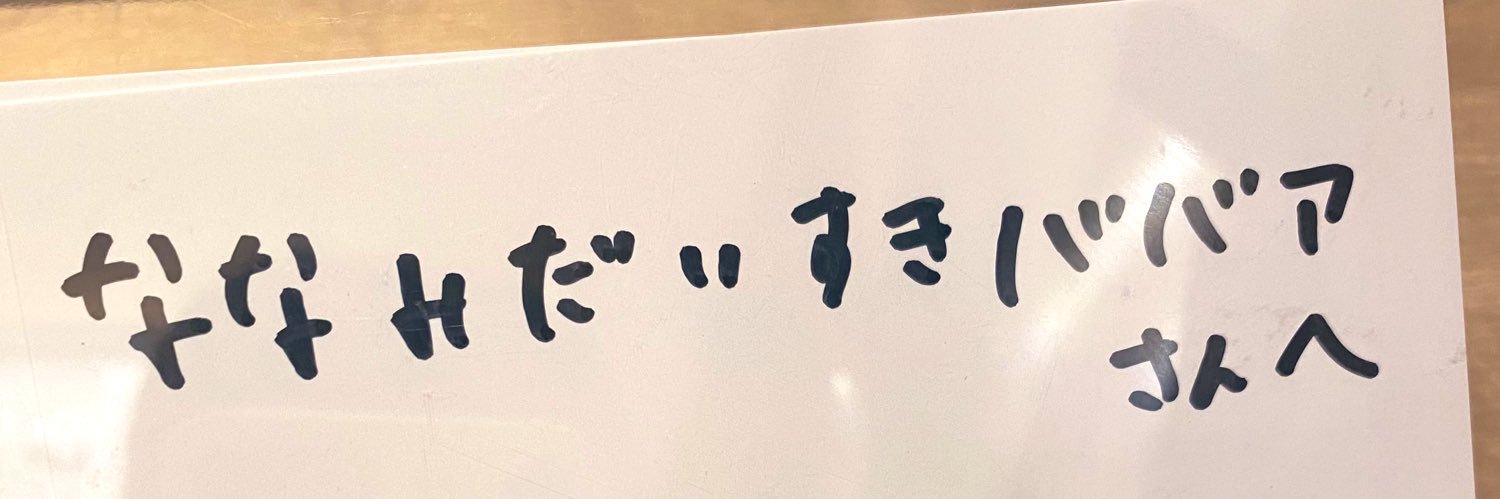 ななみだいすきババア
さんへ